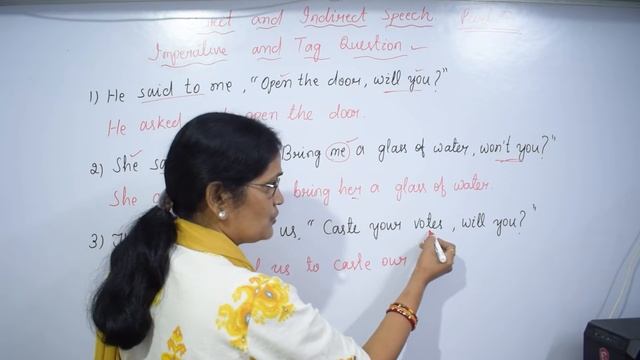 and Indirect Speech
Imperative and Tag Question
1) He said to me, "Open the door, will you?"
He asked open the door.
2) She Bring me a glass of water, won't you?"
She bring her a glass of water.
3) us, "Caste your votes, will you?"
us to caste our